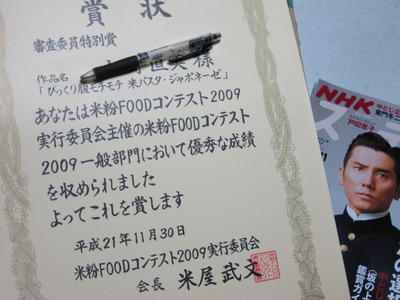 賞状
審査委員特別賞
様
作品名
「びっくり腹モチモチ 米パスタ・ジャポネーゼ」
あなたは米粉FOODコンテスト2009
実行委員会主催の米粉FOODコンテスト
2009一般部門において優秀な成績
を収められました
よってこれを賞します
平成21年11月30日
米粉FOODコンテスト2009実行委員会
会長 米屋武文
NHK
戸田恵子
ステ
中とじ
(坂の上
鑑賞ガイ